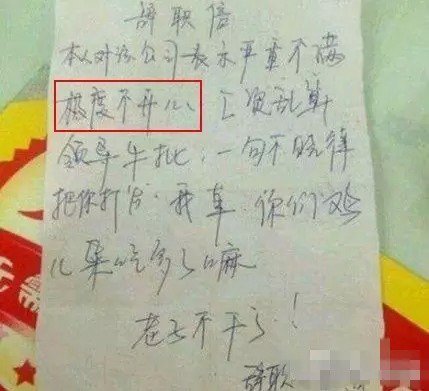 辞职信
本人对该公司表示严重不满
极度不开心、工资乱算
领导牛批,一句不晓得
把你打发.我草,你们鸡
儿集吃多了嘛
老子不干了!
辞职
需